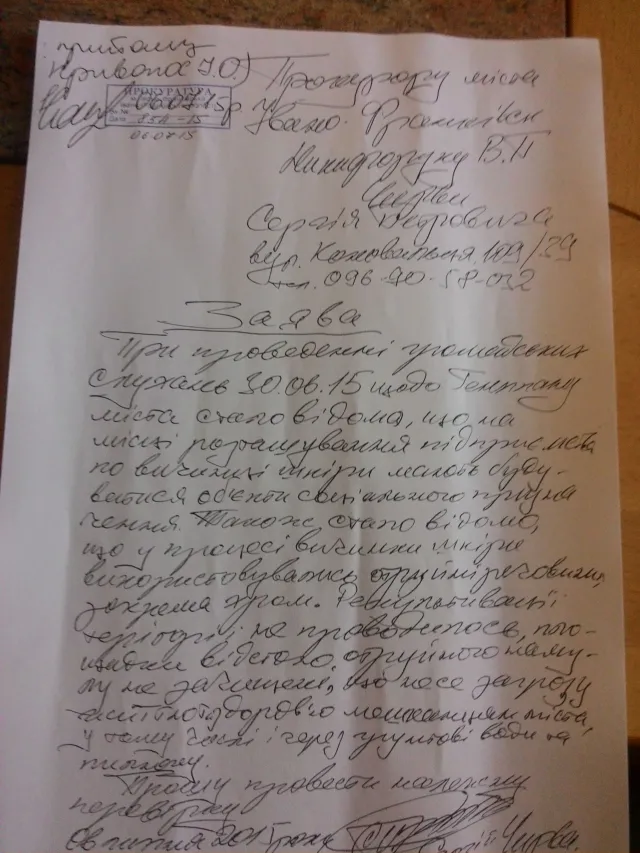 Прокурору міста
Івано-Франківськ
Никифоруку В.П
Сергія Петровича
вул. Коновальця 109/39
тел. 096-90-58-032
ПРОКУРАТУРА
06.07.15
Заява
При проведенні громадських
слухань 30.06.15 щодо Генплану
міста стало відомо, що на
місці розташування підприємства
по вичинці шкіри мають буду-
ватися об'єкти соціального призна
чення. Також стало відомо,
що у процесі вичинки шкіри
використовувались отруйні речовини,
зокрема хром. Рекультивації
території не проводилось, пло-
щадки відстою отруйного наму-
лу не зачищені, що несе загрозу
життю та здоров'ю мешканцям міста,
у тому числі і через ґрунтові води та
Прошу провести належну
перевірку
06 липня 2015 року